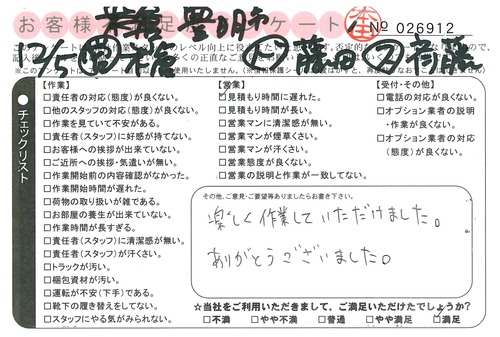 お客様 満足度アンケート
№ 026912
豊明市
12/5
チェックリスト
【作業】
□責任者の対応(態度)が良くない。
□他のスタッフの対応(態度)が良くない。
□作業を見ていて不安がある。
□責任者(スタッフ)に好感が持てない。
□お客様への挨拶が出来ていない。
□ご近所への挨拶・気遣いが無い。
□作業開始前の内容確認がなかった。
□作業開始時間が遅れた。
□荷物の取り扱いが雑である。
□お部屋の養生が出来ていない。
□作業時間が長すぎる。
□責任者(スタッフ)に清潔感が無い。
□責任者(スタッフ)が汗くさい。
□トラックが汚い。
□梱包資材が汚い。
□運転が不安(下手)である。
□靴下の履き替えをしてない。
□スタッフにやる気がみられない。
【営業】
□見積もり時間に遅れた。
□見積もり時間が長い。
□営業マンに清潔感が無い。
□営業マンが煙草くさい。
□営業マンが汗くさい。
□営業態度が良くない。
□営業の説明と作業が一致してない。
【受付・その他】
□電話の対応が良くない。
□オプション業者の説明
・作業が良くない。
□オプション業者の対応
(態度)が良くない。
その他、ご意見・ご要望等ありましたらお書き下さい。
楽しく作業していただけました。
ありがとうございました。
☆当社をご利用いただきまして、ご満足いただけたでしょうか?
□不満 □やや不満 □普通 □やや満足 □満足